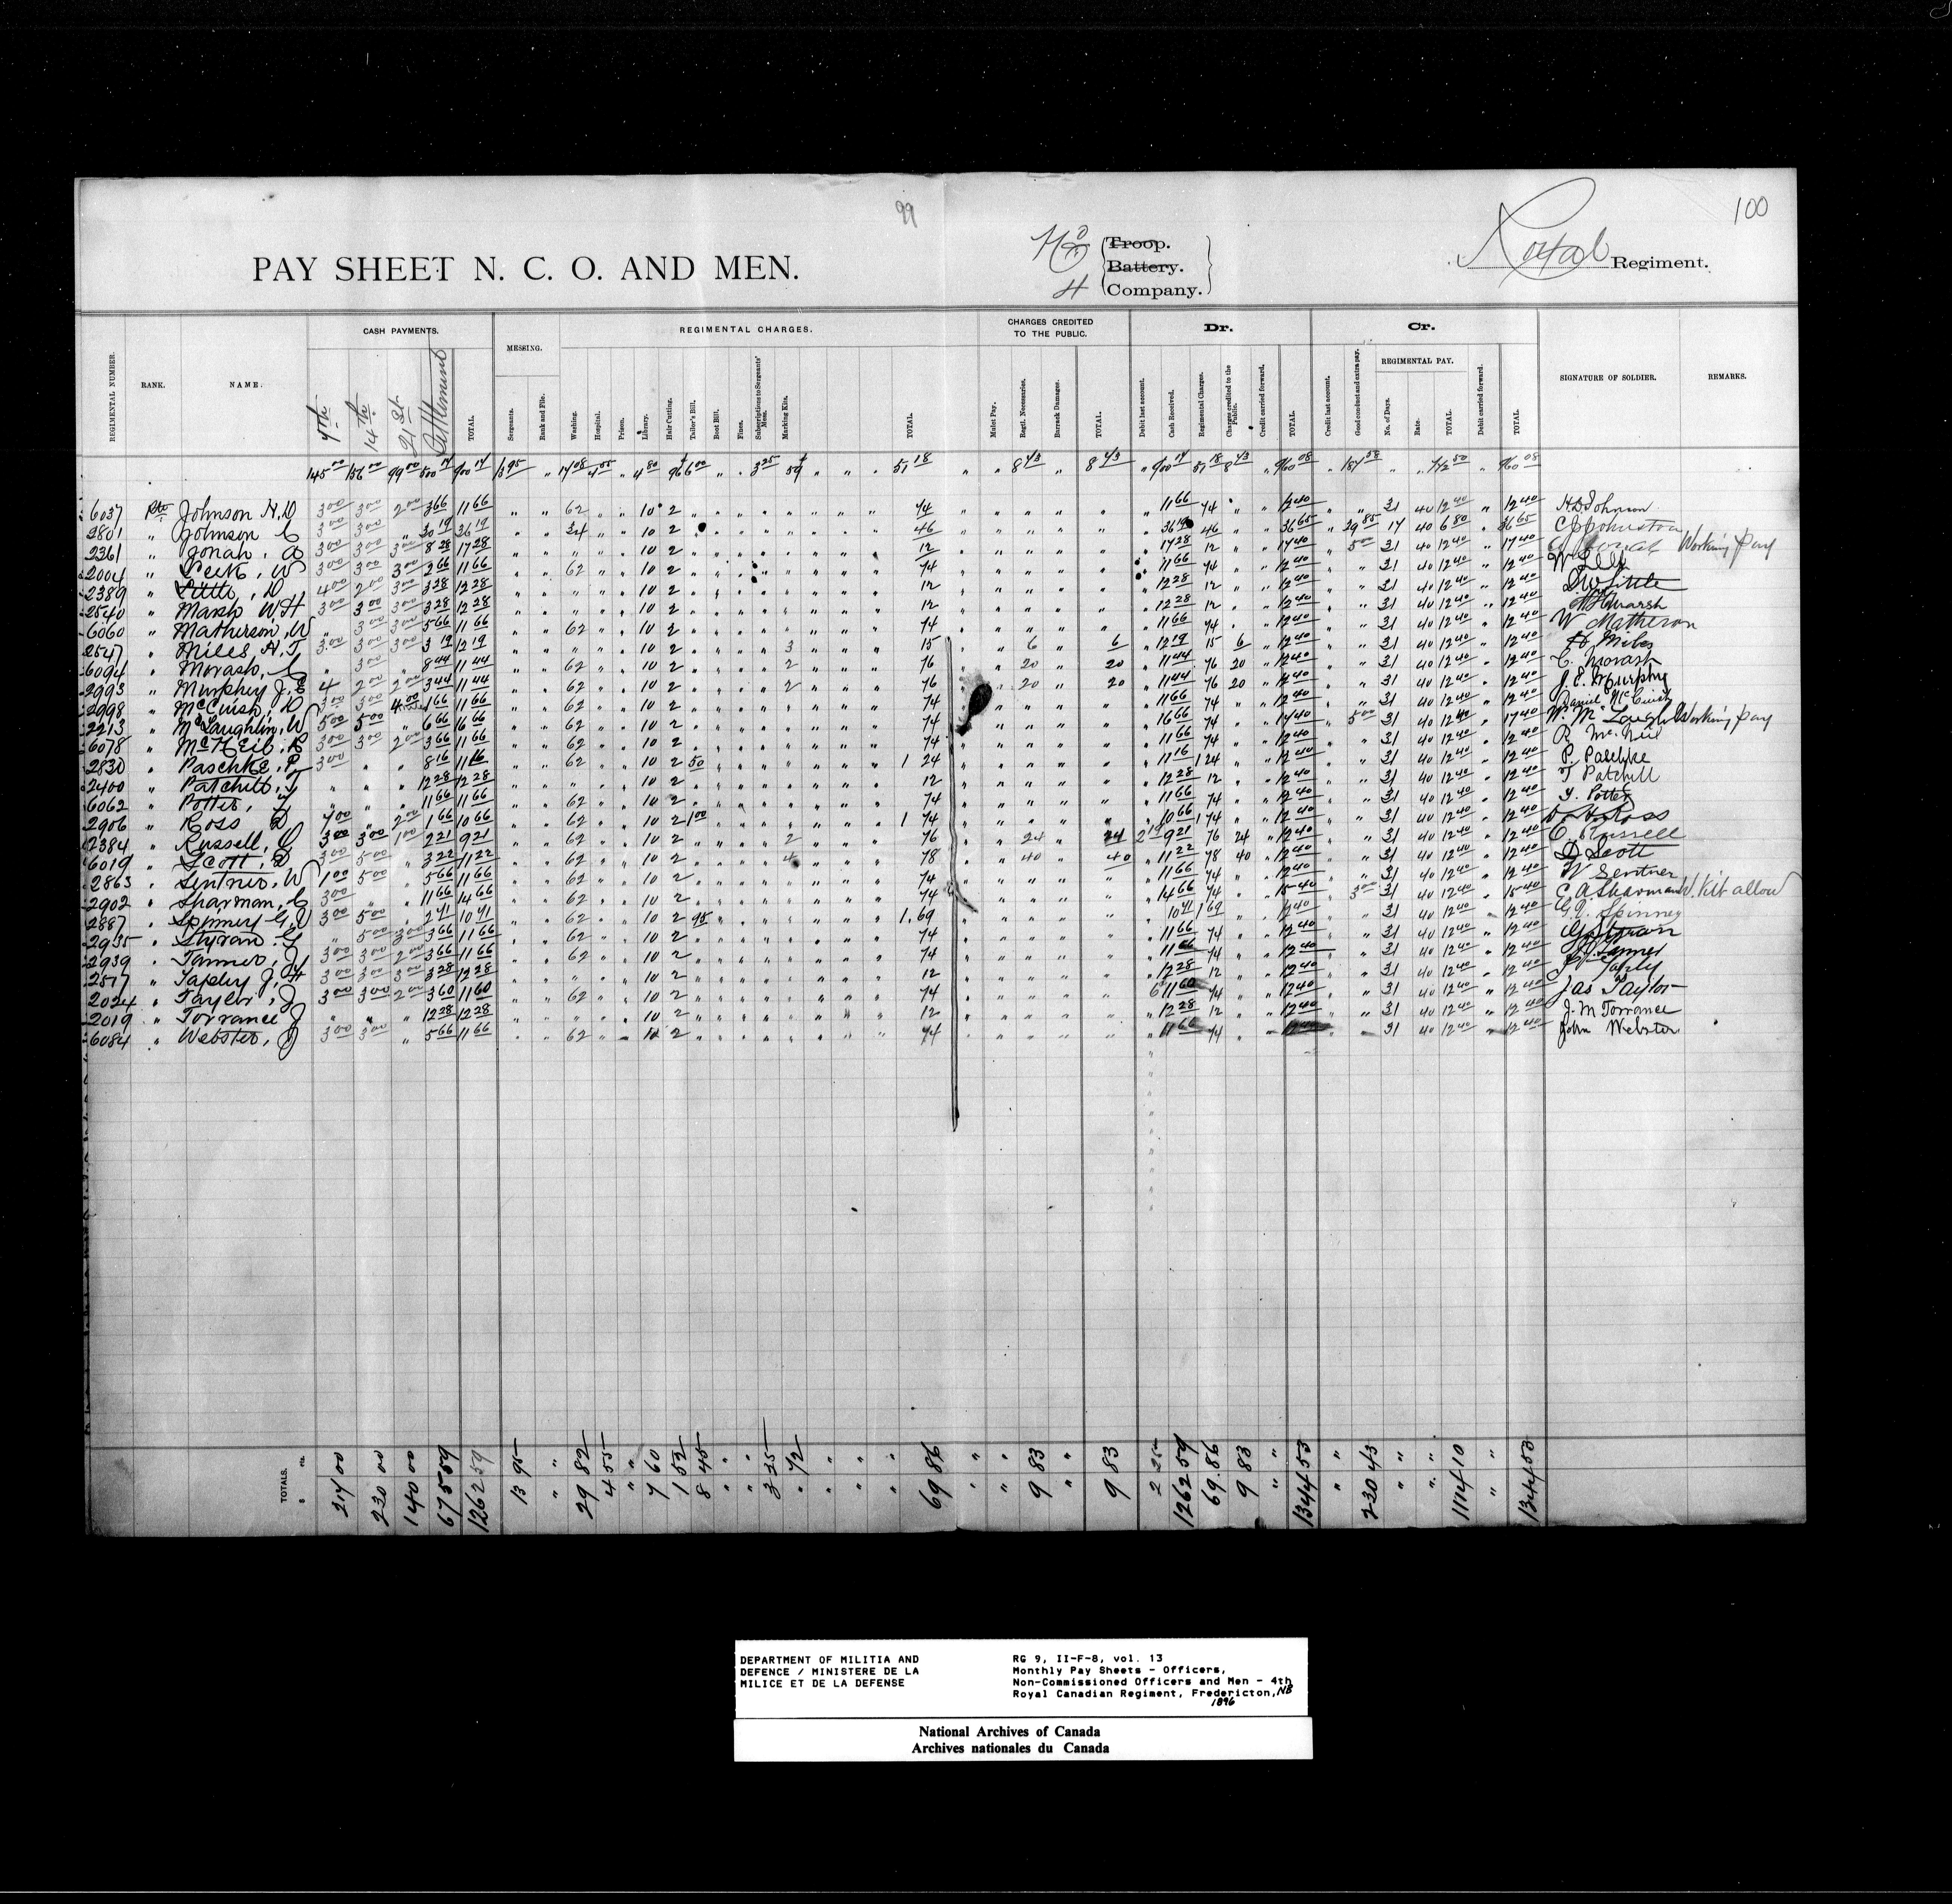 99
100
PAY SHEET N. C. O. AND MEN.
Troop.
Battery.
H Company.
Royal Regiment.
REGIMENTAL NUMBER. RANK. NAME. CASH PAYMENTS. 7th 14th 21st Settlement TOTAL. MESSING. Sergeants. Rank and File. REGIMENTAL CHARGES. Washing. Hospital. Prison. Library. Hair Cutting. Tailor's Bill. Boot Bill. Fines. Subscriptions to Sergeants' Mess. Marking Kits. TOTAL. CHARGES CREDITED TO THE PUBLIC. Mulct Pay. Regtl. Necessaries. Barrack Damages. TOTAL. Dr. Debit last account. Cash Received. Regimental Charges. Charges credited to the Public. Credit carried forward. TOTAL. Cr. Credit last account. Good conduct and extra pay. REGIMENTAL PAY. No. of Days. Rate. TOTAL. Debit carried forward. TOTAL. SIGNATURE OF SOLDIER. REMARKS.
145 00 156 00 99 00 500 14 900 14 13 95 " 17 08 4 55 " 4 80 96 6 00 " " 3 25 " " " 51 18 " " 8 43 " 8 43 " 900 14 51 18 8 43 " 960 08 " 187 58 " " 772 50 " 960 08
6037 Pte Johnson H.D 3 00 3 00 2 00 3 66 11 66 " " 62 " " 10 2 74 11 66 74 12 40 31 40 12 40 12 40 H.D Johnson
2801 " Johnson C 3 00 3 00 " 30 19 36 19 " " 34 " " 10 2 46 36 19 46 36 65 29 85 17 40 6 80 36 65 C P Johnston
2361 " Jonah, A 3 00 3 00 3 00 8 28 17 28 10 2 12 17 28 12 17 40 5 00 31 40 12 40 17 40 Working Pay
2004 " Leek, W 3 00 3 00 3 00 2 66 11 66 62 10 2 74 11 66 74 12 40 31 40 12 40 12 40
2389 " Little, D 4 00 2 00 3 00 3 28 12 28 10 2 12 12 28 12 12 40 31 40 12 40 12 40 D.W Little
2540 " Marsh W.H 3 00 3 00 3 00 3 28 12 28 10 2 12 12 28 12 12 40 31 40 12 40 12 40 W H Marsh
6060 " Matherson, W " 3 00 3 00 5 66 11 66 62 10 2 74 11 66 74 12 40 31 40 12 40 12 40 W Matherson
2547 " Miles, H.T 3 00 3 00 3 00 3 19 12 19 10 2 3 15 6 6 12 19 15 6 12 40 31 40 12 40 12 40 H Miles
6094 " Morash, C " 3 00 " 8 44 11 44 62 10 2 2 76 20 20 11 44 76 20 12 40 31 40 12 40 12 40 C. Morash
2993 " Murphy J.E 4 2 00 2 00 3 44 11 44 62 10 2 2 76 20 20 11 44 76 20 12 40 31 40 12 40 12 40 J. E. Murphy
2998 " McCuish, D 3 00 3 00 4 00 1 66 11 66 62 10 2 74 11 66 74 12 40 31 40 12 40 12 40 Daniel McCuish
2213 " McLaughlin, W 5 00 5 00 " 6 66 16 66 62 10 2 74 16 66 74 17 40 5 00 31 40 12 40 17 40 Working pay
6078 " McNeil, R 3 00 3 00 2 00 3 66 11 66 62 10 2 74 11 66 74 12 40 31 40 12 40 12 40 R McNeil
2830 " Paschke, P 3 00 " " 8 16 11 16 62 10 2 50 1 24 11 16 1 24 12 40 31 40 12 40 12 40 P. Paschke
2400 " Patchill, T " " " 12 28 12 28 10 2 12 12 28 12 12 40 31 40 12 40 12 40 T Patchill
6062 " Potter, T " " " 11 66 11 66 62 10 2 74 11 66 74 12 40 31 40 12 40 12 40 T. Potter
2906 " Ross D 7 00 " 2 00 1 66 10 66 62 10 2 1 00 1 74 10 66 1 74 12 40 31 40 12 40 12 40 Ross
2384 " Russell, C 3 00 3 00 1 00 2 21 9 21 62 10 2 2 76 24 24 2 19 9 21 76 24 12 40 31 40 12 40 12 40 C. Russell
6019 " Scott, D 3 00 5 00 " 3 22 11 22 62 10 2 4 78 40 40 11 22 78 40 12 40 31 40 12 40 12 40 D Scott
2863 " Sentner, W 1 00 5 00 " 5 66 11 66 62 10 2 74 11 66 74 12 40 31 40 12 40 12 40 W Sentner
2902 " Sharman, C 3 00 " " 11 66 14 66 62 10 2 74 14 66 74 15 40 3 00 31 40 12 40 15 40 C A Sharman W. Kit allow
2887 " Spinney G.V 3 00 5 00 " 2 41 10 41 62 10 2 95 1.69 10 41 1 69 12 40 31 40 12 40 12 40 G.V. Spinney
2935 " Styran G " 5 00 3 00 3 66 11 66 62 10 2 74 11 66 74 12 40 31 40 12 40 12 40 G Styran
2939 " Tanner, J 3 00 3 00 2 00 3 66 11 66 62 10 2 74 11 66 74 12 40 31 40 12 40 12 40 Tanner
2577 " Tapley J.H 3 00 3 00 3 00 3 28 12 28 10 2 12 12 28 12 12 40 31 40 12 40 12 40 Tapley
2024 " Taylor, J 3 00 3 00 2 00 3 60 11 60 62 10 2 74 6 11 60 74 12 40 31 40 12 40 12 40 Jas Taylor
2019 " Torrance J " " " 12 28 12 28 10 2 12 12 28 12 12 40 31 40 12 40 12 40 J. M Torrance
6084 " Webster, J 3 00 3 00 " 5 66 11 66 62 10 2 74 11 66 74 12 40 31 40 12 40 12 40 John Webster
TOTALS. $ cts. 217 00 230 00 140 00 675 59 1262 59 13 95 " 29 82 4 55 " 7 60 1 52 8 45 " " 3 25 72 " " " " 69 86 " " 9 83 " 9 83 2 25 1262 59 69.86 9 83 " 1344 53 " 230 43 " " 1114 10 " 1344 53
DEPARTMENT OF MILITIA AND
DEFENCE / MINISTERE DE LA
MILICE ET DE LA DEFENSE
RG 9, II-F-8, vol. 13
Monthly Pay Sheets - Officers,
Non-Commissioned Officers and Men - 4th
Royal Canadian Regiment, Fredericton, NB
1896
National Archives of Canada
Archives nationales du Canada